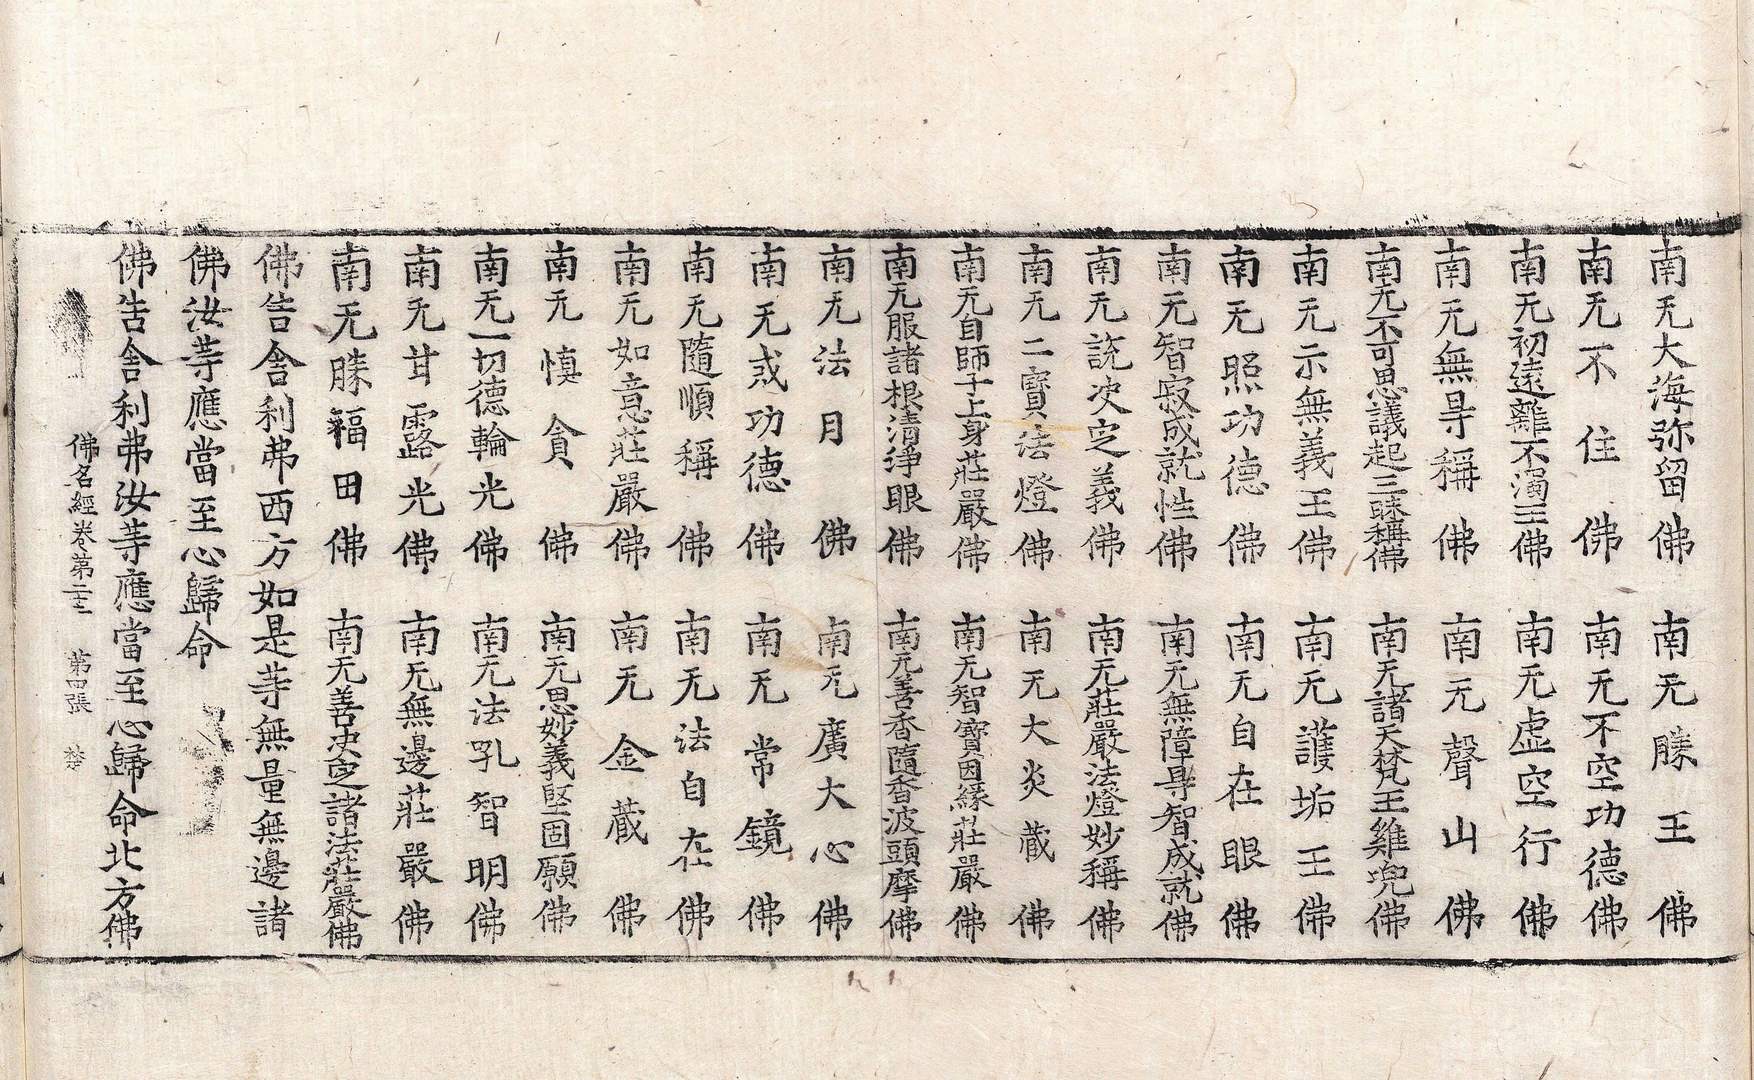 南无大海弥留佛 南无勝王佛
南无不住佛 南无不空功德佛
南无初遠離不濁王佛 南无虚空行佛
南无無㝵稱佛 南无聲山佛
南无不可思議起三昧稱佛 南无諸天梵王雞兜佛
南无示無義王佛 南无護垢王佛
南无照功德佛 南无自在眼佛
南无智寂成就性佛 南无無障㝵智成就佛
南无說决定義佛 南无莊嚴法燈妙稱佛
南无二寶法燈佛 南无大炎藏佛
南无自師子上身莊嚴佛 南无智寶因緣莊嚴佛
南无服諸根清淨眼佛 南无善香隨香波頭摩佛
南无法月佛 南无廣大心佛
南无或功德佛 南无常鏡佛
南无隨順稱佛 南无法自在佛
南无如意莊嚴佛 南无金藏佛
南无慎貪佛 南无思妙義堅固願佛
南无一切德輪光佛 南无法孔智明佛
南无甘露光佛 南无無邊莊嚴佛
南无勝福田佛 南无善决定諸法莊嚴佛
佛告舎利弗西方如是䓁無量無邊諸
佛汝䓁應當至心歸命
佛告舎利弗汝䓁應當至心歸命北方佛
佛名經卷第二 第四張